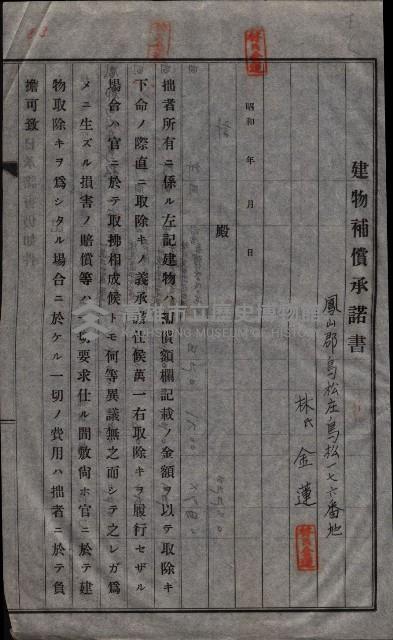 建物補償承諾書
鳳山郡鳥松庄鳥松一七六番地
林氏金蓮
林氏金蓮
昭和 年 月 日
殿
拙者所有ニ係ル左記建物ハ補償額欄記載ノ金額ヲ以テ取除キ
下命ノ際直ニ取除キノ義承諾仕候萬一右取除キヲ履行セザル
場合ハ官ニ於テ取拂相成候トモ何等異議無之而シテ之レガ爲
メニ生ズル損害ノ賠償等ハ一切要求仕ル間敷尙ホ官ニ於テ建
物取除キヲ爲シタル場合ニ於ケル一切ノ費用ハ拙者ニ於テ負
擔可致
高雄市立歷史博物館